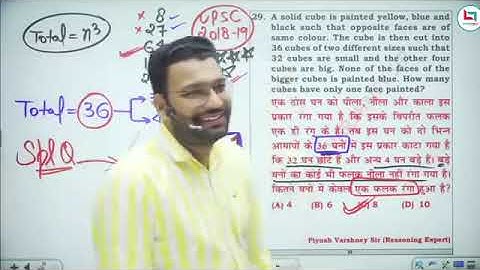 Total = n³
× 8
× 27
64
UPSC
2018-19
Total = 36
Spl Q
29. A solid cube is painted yellow, blue and
black such that opposite faces are of
same colour. The cube is then cut into
36 cubes of two different sizes such that
32 cubes are small and the other four
cubes are big. None of the faces of the
bigger cubes is painted blue. How many
cubes have only one face painted?
एक ठोस घन को पीला, नीला और काला इस
प्रकार रंगा गया है कि इसके विपरीत फलक
एक ही रंग के हैं। तब इस घन को दो भिन्न
आयामों के 36 घनों में इस प्रकार काटा गया है
कि 32 घन छोटे हैं और अन्य 4 घन बड़े हैं। बड़े
घनों का कोई भी फलक नीला नहीं रंगा गया है।
कितने घनों में केवल एक फलक रंगा हुआ है?
(A) 4 (B) 6 (C) 8 (D) 10
Piyush Varshney Sir (Reasoning Expert)